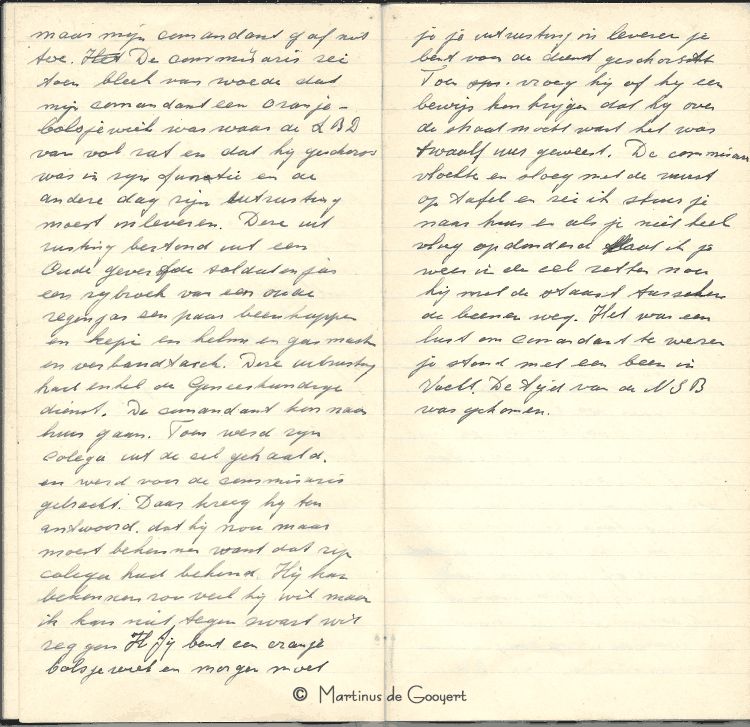 maar mijn comandant gaf niet
toe. Het De commisaris zei
toen bleek van woede dat
mijn comandant een oranje-
bolsjewiek was waar de LBD
van vol zat en dat hij geschorst
was in zijn functie en de
andere dag zijn uitrusting
moest inleveren. Deze uit
rusting bestond uit een
Oude geverfde soldatenjas
een rijbroek van een oude
regenjas een paar beenkappen
en kepie en helm en gasmasker
en verbandtasch. Deze uitrusting
had enkel de Geneeskundige
dienst. De comandant kon naar
huis gaan. Toen werd zijn
colega uit de cel gehaald.
en werd voor de commisaris
gebracht. Daar kreeg hij ten
antwoord. dat hij nou maar
moest bekennen want dat zijn
colega had bekend. Hij kan
bekennen zou veel hij wil maar
ik kan niet tegen zwart wit
zeggen Jij bent een oranje
bolsjewiek en morgen moet
je je uitrusting in leveren je
bent voor de dienst geschorst
Toen vroeg hij of hij een
bewijs kon krijgen dat hij over
de straat mocht want het was
twaalf uur geweest. De commisaris
vloekte en sloeg met de vuist
op tafel en zei ik stuur je
naar huis en als je niet heel
vlug opdonderd laat ik je
weer in de cel zetten nou
hij met de staart tusschen
de beenen weg. Het was een
lust om comandant te wezen
je stond met een been in
Vucht. De tijd van de NSB
was gekomen.
© Martinus de Gooyert